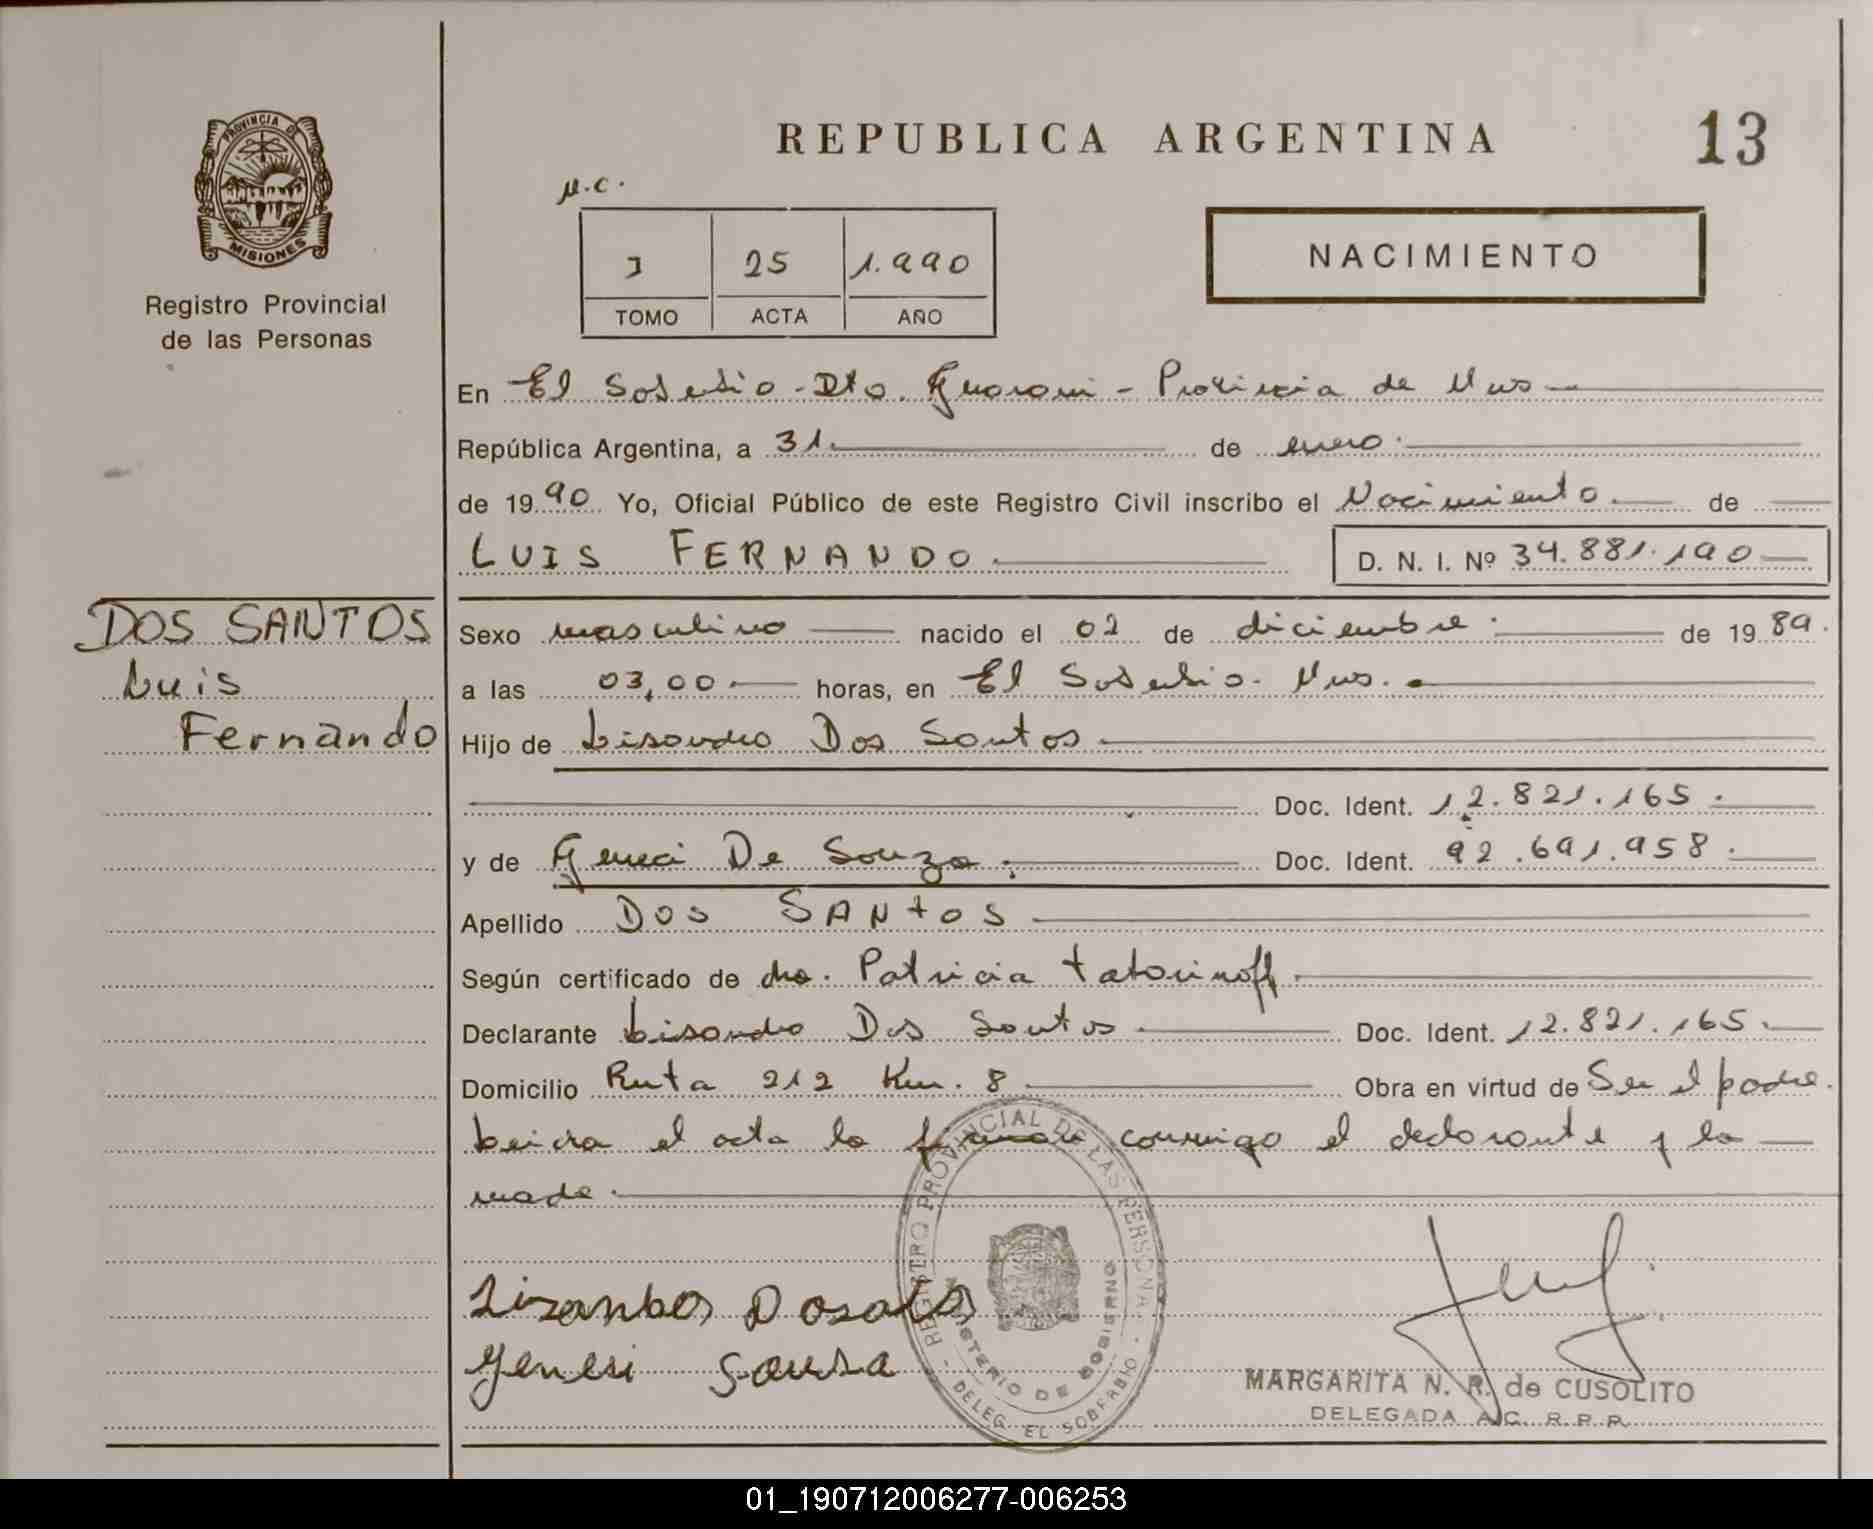 REPUBLICA ARGENTINA 13
PROVINCIA DE
MISIONES
Registro Provincial
de las Personas
M.C.
25 1.990
TOMO ACTA AÑO
NACIMIENTO
En El Soberbio - Dto. Guarani - Provincia de Mnes
República Argentina, a 31. de enero.
de 1990 Yo, Oficial Público de este Registro Civil inscribo el Nacimiento. de
LUIS FERNANDO. D. N. I. Nº 34.881.190
DOS SANTOS
Luis
Fernando
Sexo masculino nacido el 02 de diciembre. de 1989.
a las 03,00. horas, en El Soberbio. Mnes.
Hijo de Lisandro Dos Santos
Doc. Ident. 12.821.165.
y de Geneci De Souza. Doc. Ident. 92.691.958.
Apellido DOS SANTOS
Según certificado de dra. Patricia Tatorinoff.
Declarante Lisandro Dos Santos Doc. Ident. 12.821.165.
Domicilio Ruta 212 Km. 8 Obra en virtud de Ser el padre.
Leida el acta la firman conmigo el declarante y la
madre.
REGISTRO PROVINCIAL DE LAS PERSONAS
MINISTERIO DE GOBIERNO
DELEG. EL SOBERBIO
Genesi Sousa
MARGARITA N. R. de CUSOLITO
DELEGADA A.C. R.P.P.
01_190712006277-006253